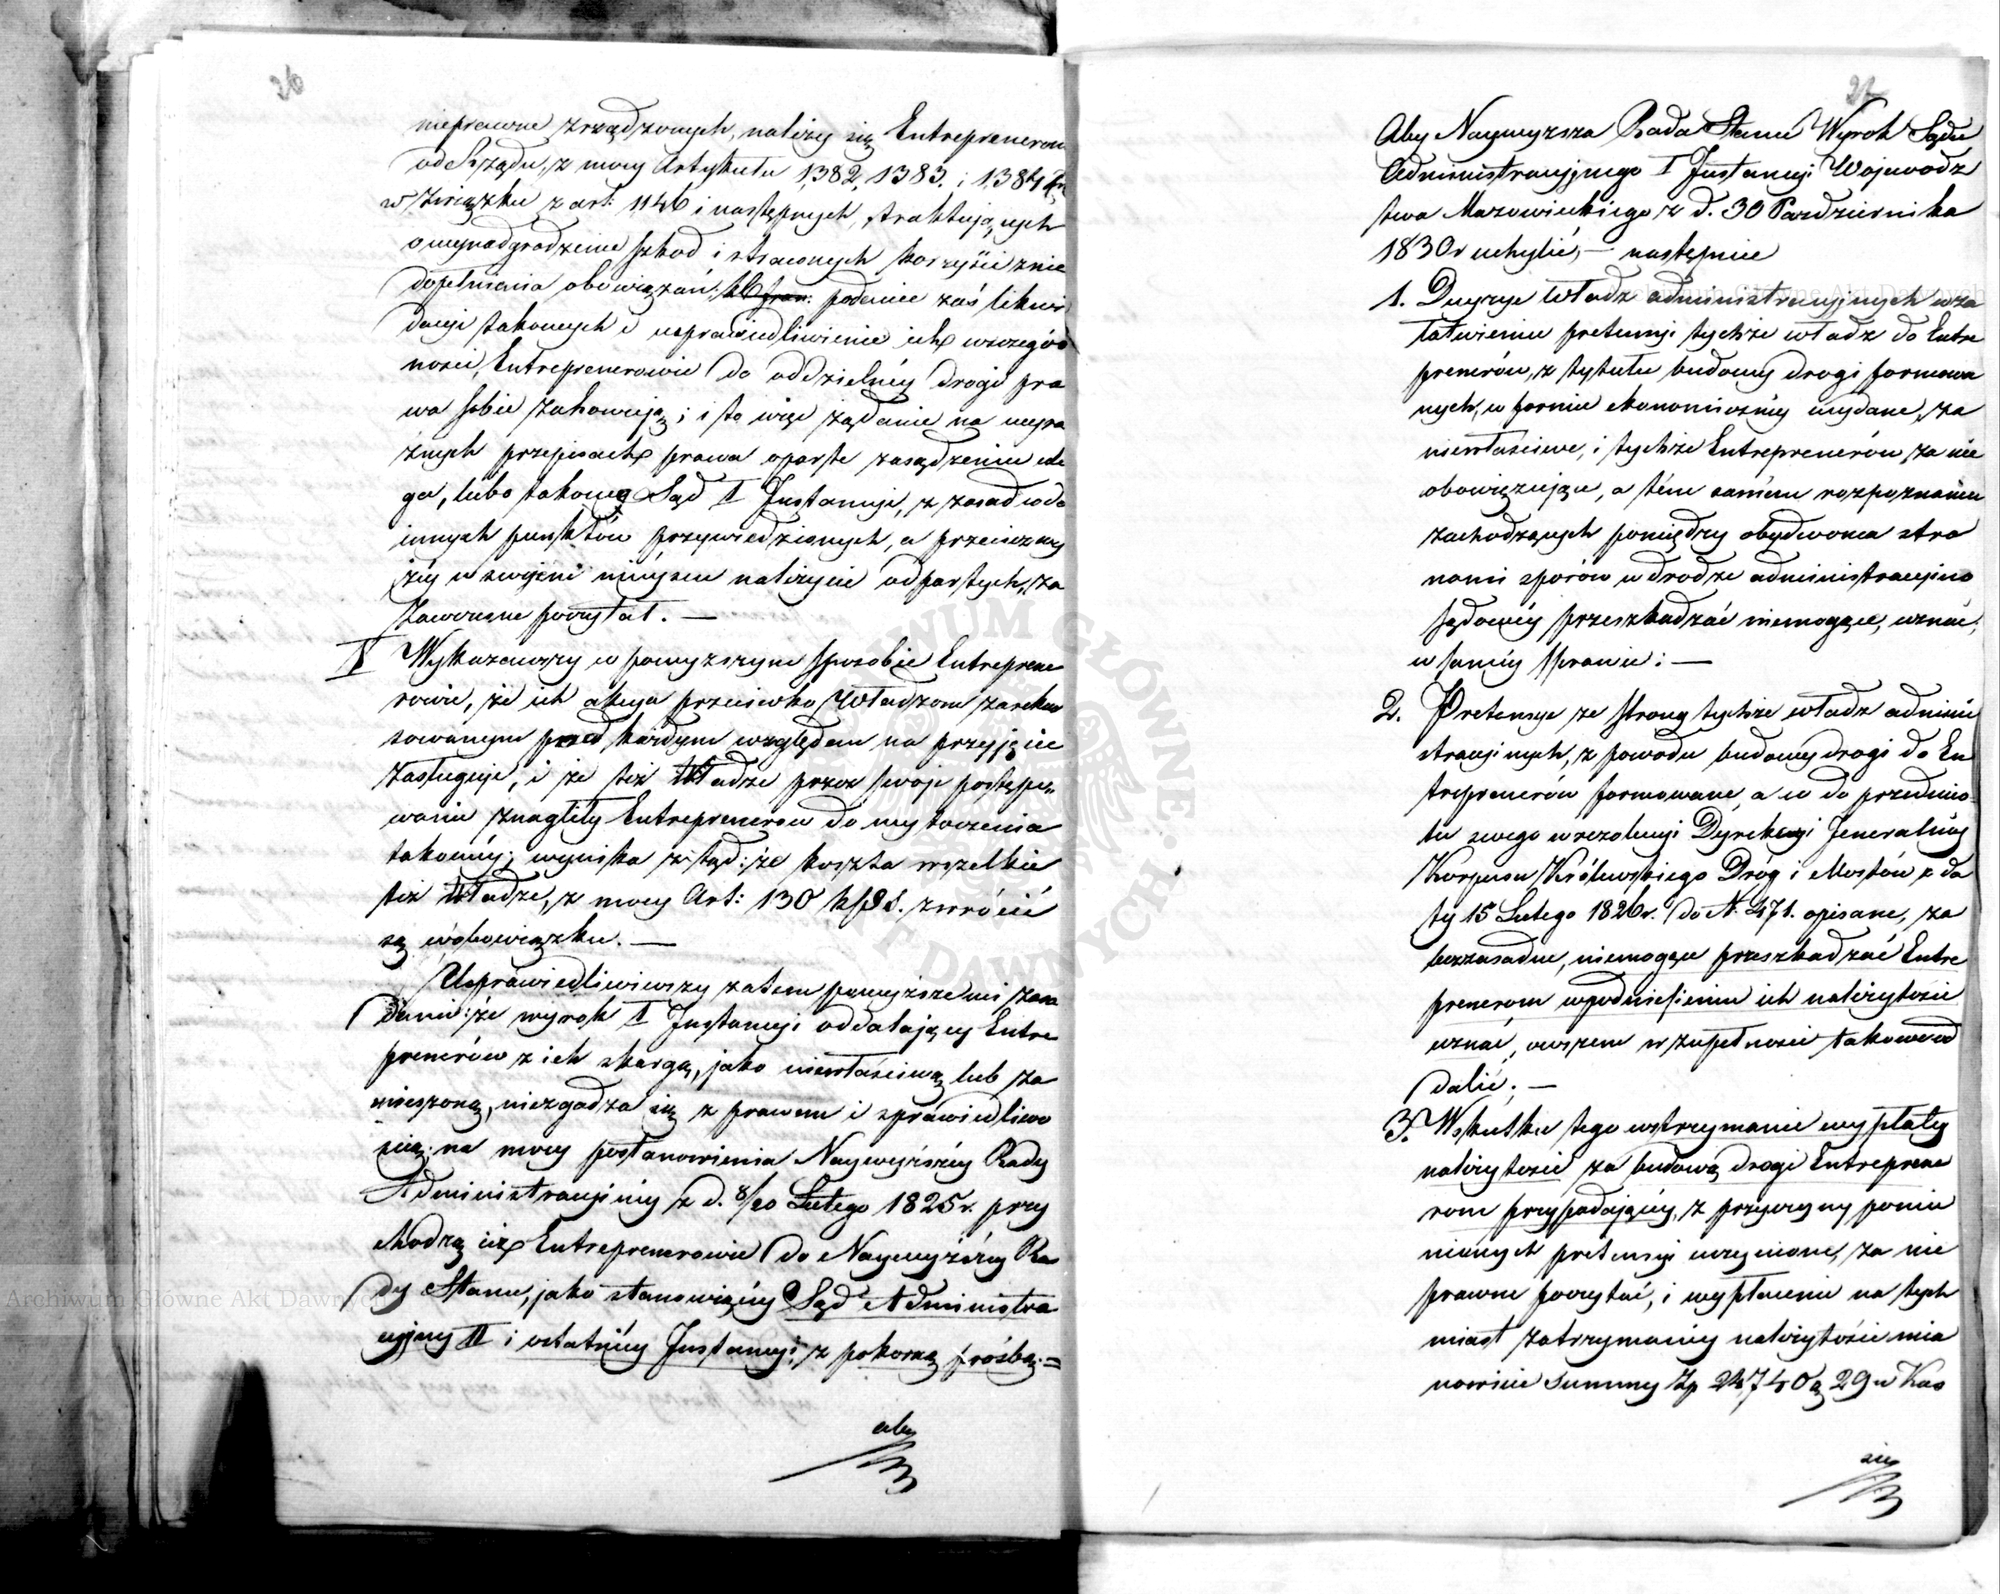 26
nieprawne zrządzonych, należy się Entreprenerom
od Rządu, z mocy Artykułu 1382, 1383. i 1384
w związku z art: 1146 i następnych, traktujących
o wynadgrodzenie szkod i straconych korzyści z nie
dopełniania obowiązań; podanie zaś likwi
dacyi takowych i usprawiedliwienie ich w szczegó
ności, Entreprenerowie do oddzielnéy drogi pra
wa sobie zachowują; i to więc żądanie na wyra
źnych przepisach prawa oparte zasądzeniu ule
ga, lubo takowe Sąd I Instancyi, z zasad w do
innych punktów przywiedzionych, a przeciez wy
żéy w swojem miejscu należycie odpartych, za
zawczesne poczytał. —
X Wykazawszy w powyższym sposobie Entreprene
rowie, że ich akcya przeciwko Władzom zarekur
sowanym pod każdym względem na przyjęcie
zasługuje, i że też Władze przez swoje postępo„
wanie znagliły Entreprenerów do wytoczenia
takowéy; wynika ztąd: że koszta wszelkie
też Władze, z mocy Art: 130 k.p.S. zwrócić
są w obowiązku. —
Usprawiedliwiwszy zatem powyższemi zasa
dami: że wyrok I Instancyi oddalający Entre
prenerów z ich skargą, jako niewłaściwą lub za
wczesną, niezgadza się z prawem i sprawiedliwo
ścią; na mocy postanowienia Naywyższéy Rady
Administracyinéy z d. 8/20 Lutego 1825 r. przy
chodzą iuż Entreprenerowie do Naywyższéy Ra
dy Stanu, jako stanowiącéy Sąd Administra
cyjny II i ostatniéy Instancyi, z pokorną prośbą: =
aby
27
Aby Naywyższa Rada Stanu Wyrok Sądu
Administracyjnego I Instancyi Wojewódz
twa Mazowieckiego z d. 30 Października
1830 r uchylić, — następnie
1. Decyzje Władz administracyjnych w za
łatwieniu pretensyi tychże władz do Entre
prenerów, z tytułu budowy drogi formowa
nych, w formie ekonomicznéy wydane, za
niewłaściwe, i tychże Entreprenerów, za nie
obowiązujące, a tém samém rozpoznaniu
zachodzących pomiędzy obydwoma stro
nami sporów w drodze administracyjno
sądowéy przeszkadzać niemogące, uznać,
w saméy sprawie: —
2. Pretensye ze strony tychże władz admini
stracyinych, z powodu budowy drogi do En
treprenerów formowane, a co do przedmio
tu swego w rezolucyi Dyrekcyi Jeneralnéy
Korpusu Królewskiego Dróg i Mostów z da
ty 15 Lutego 1826 r. do N. 471. opisane, za
bezzasadne, niemogące przeszkadzać Entre
prenerom w podniesieniu ich należytości
uznać, owszem w zupełności takowe od
dalić; —
3. W skutku tego wstrzymanie wypłaty
należytości za budowę drogi Entreprene
rom przypadającéy, z przyczyny pomie
nionych pretensyi uczynione, za nie
prawne poczytać, i wypłacenie na tych
miast zatrzymanéy należytości mia
nowicie summy Zp 24740 g 29 w Kas
sie
Archiwum Główne Akt Dawnych
Archiwum Główne Akt Dawnych
ARCHIWUM GŁÓWNE AKT DAWNYCH